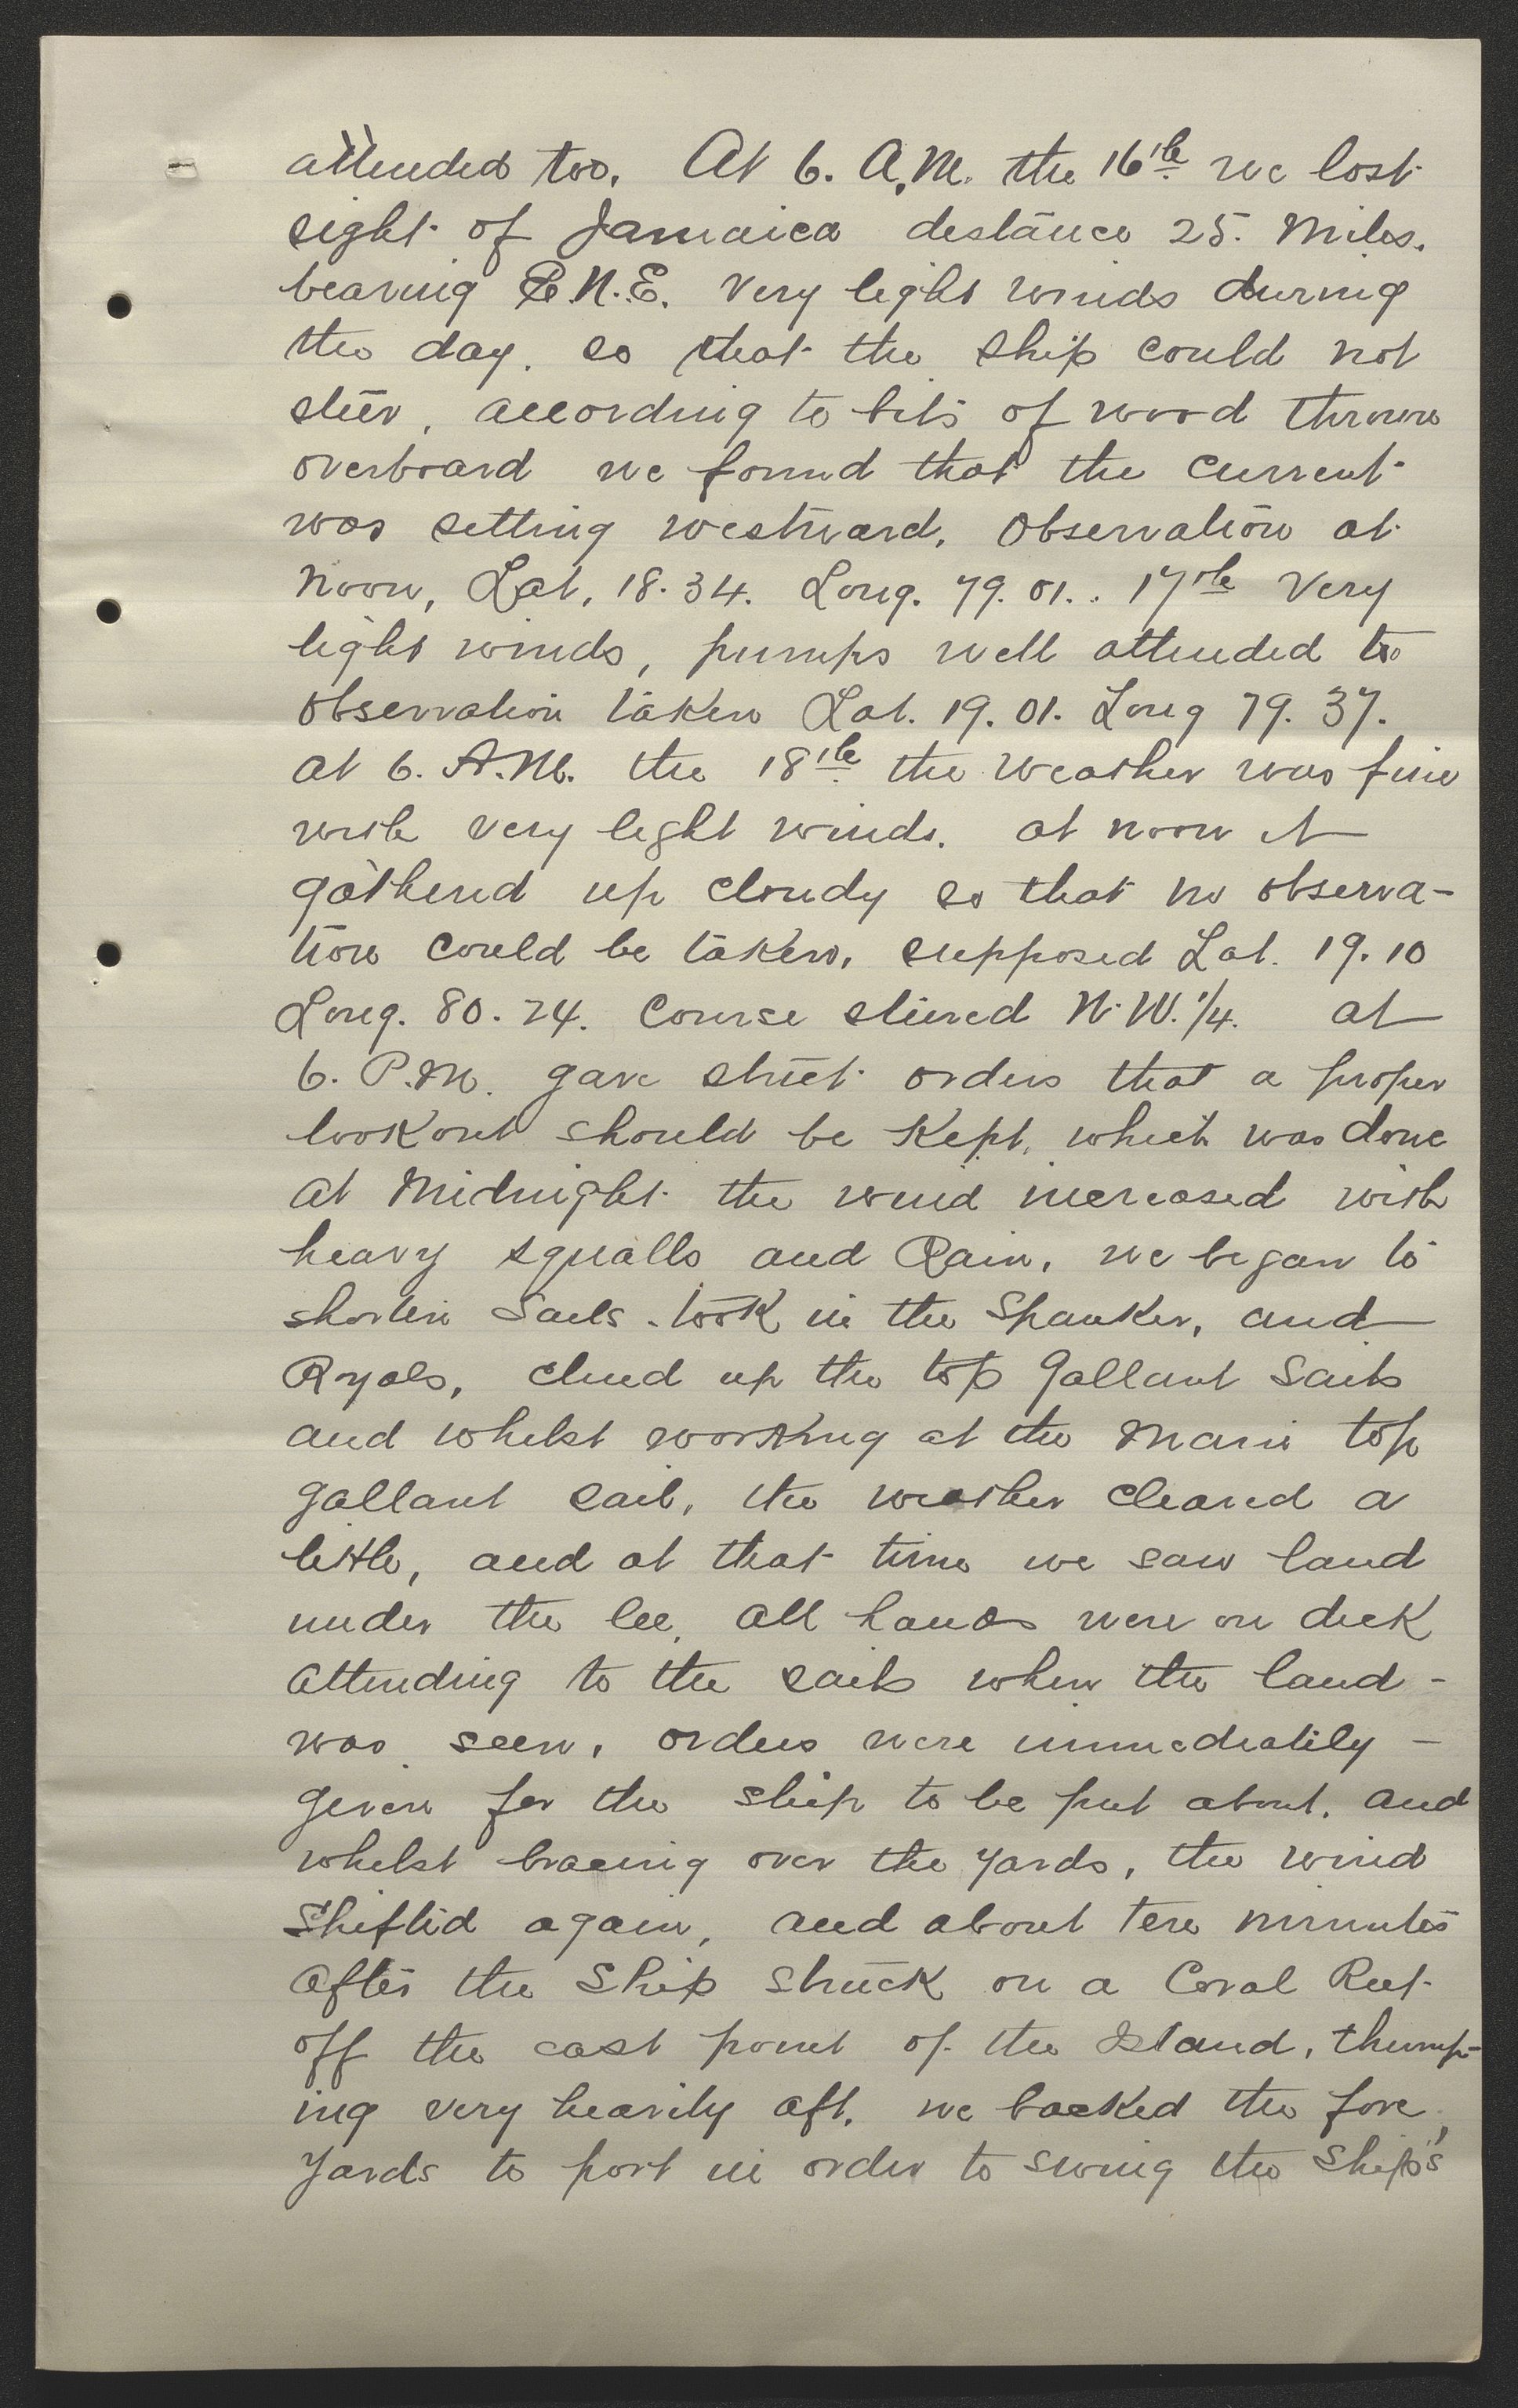 attended too. At 6. A.M. the 16th we lost
sight of Jamaica destance 25. Miles.
bearing E.N.E. Very light winds during
the day. so that the ship could not
steer, according to bits of wood thrown
overboard we found that the current
was setting westward. Observation at
noon, Lat. 18.34. Long. 79.01.. 17th Very
light winds, pumps well attended to
observation taken Lat. 19.01. Long 79.37.
at 6. A.M. the 18th the weather was fine
with very light winds. at noon it
gatherd up cloudy so that no observa-
tion could be taken. supposed Lat. 19.10
Long. 80.24. Course steered N.W. 1/4. at
6. P.M. gave strict orders that a proper
lookout should be kept, which was done
at Midnight the wind increased with
heavy squalls and Rain, we began to
shorten Sails. took in the Spanker, and
Ryals, clued up the top gallant Sails
and whilst working at the Main top
gallant sail, the weather cleared a
little, and at that time we saw land
under the lee. all hands were on deck
attending to the sails when the land -
was seen, orders were immediatily -
given for the ship to be put about. and
whilst bracing over the yards, the wind
Shiftid again, and about ten minutes
after the Ship struck on a Coral Reef
off the east point of the Island, thump-
ing very heavily aft. we backed the fore
Yards to port in order to swing the Ship's